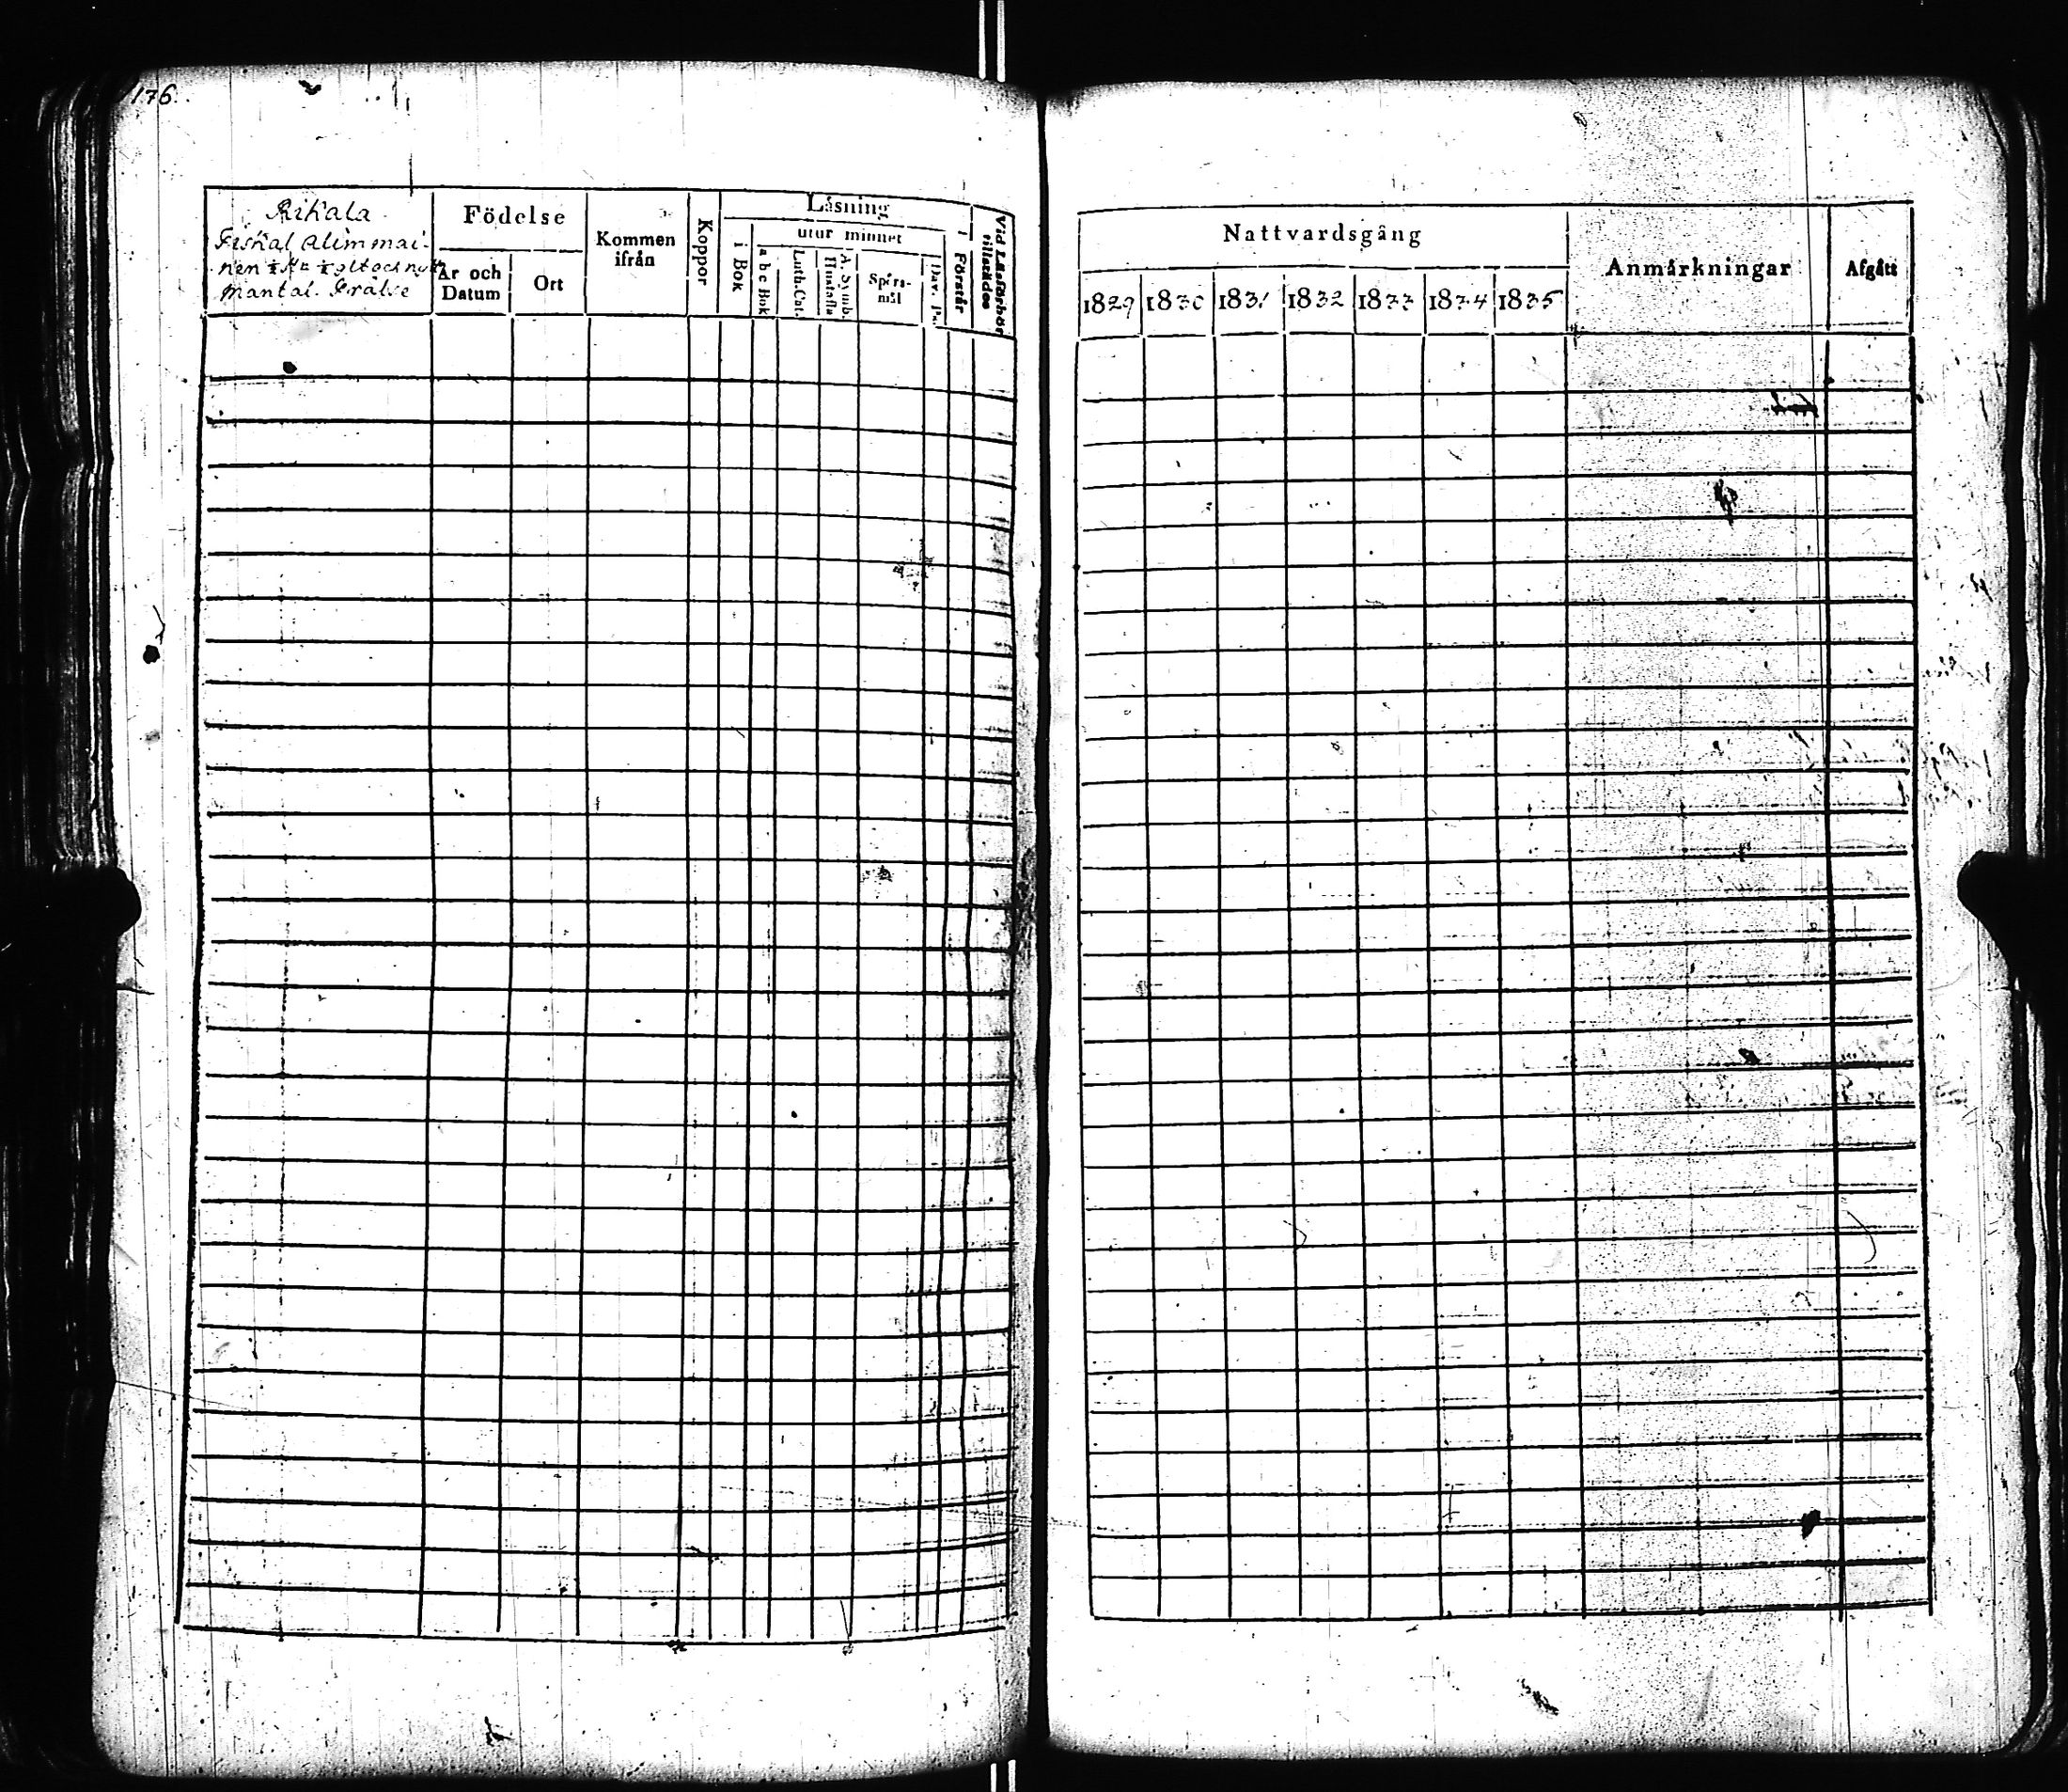 176.
Rikala
Fiskal Alimmai-
nen ½
Mantal. Frälse
Födelse
År och
Datum
Ort
Kommen
ifrån
Koppor
Läsning
i Bok
utur minnet
a b c Bok
Luth. Cat.
A. Symb.
Hustafla
Spörs-
mål
Dav. Ps.
Förstår
Vid Läsförhör
tillstädes
Nattvardsgång
1829 1830 1831 1832 1833 1834 1835
Anmärkningar
Afgått